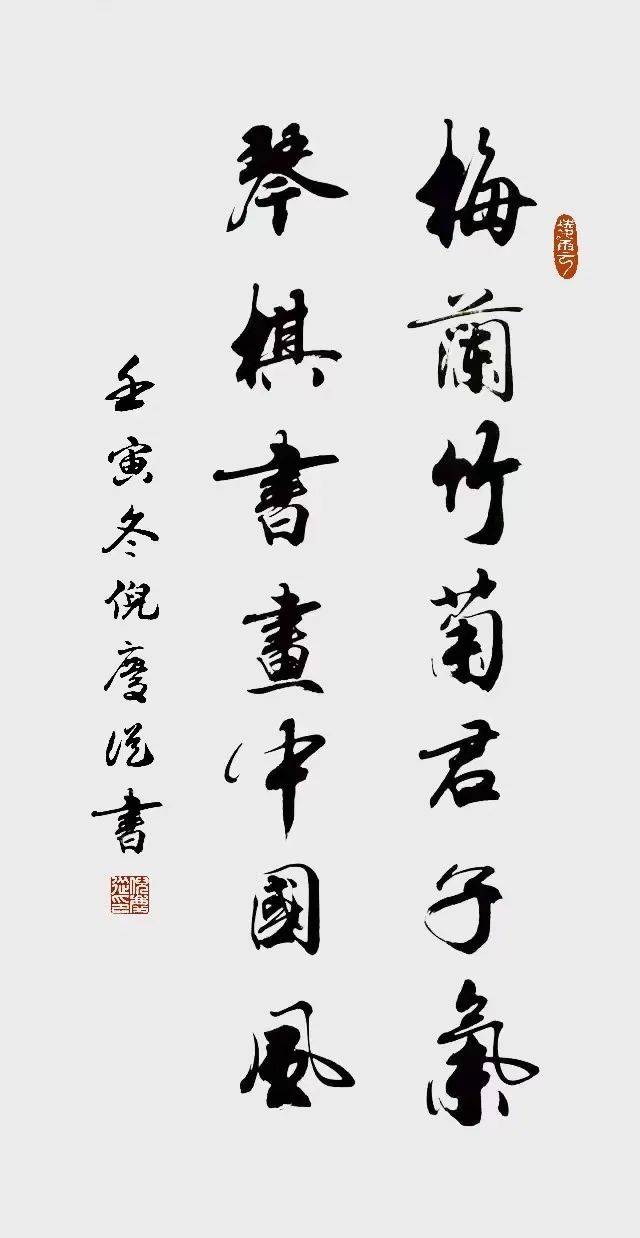 梅蘭竹菊君子氣
琴棋書畫中國風
壬寅冬倪慶從書
倪慶從印